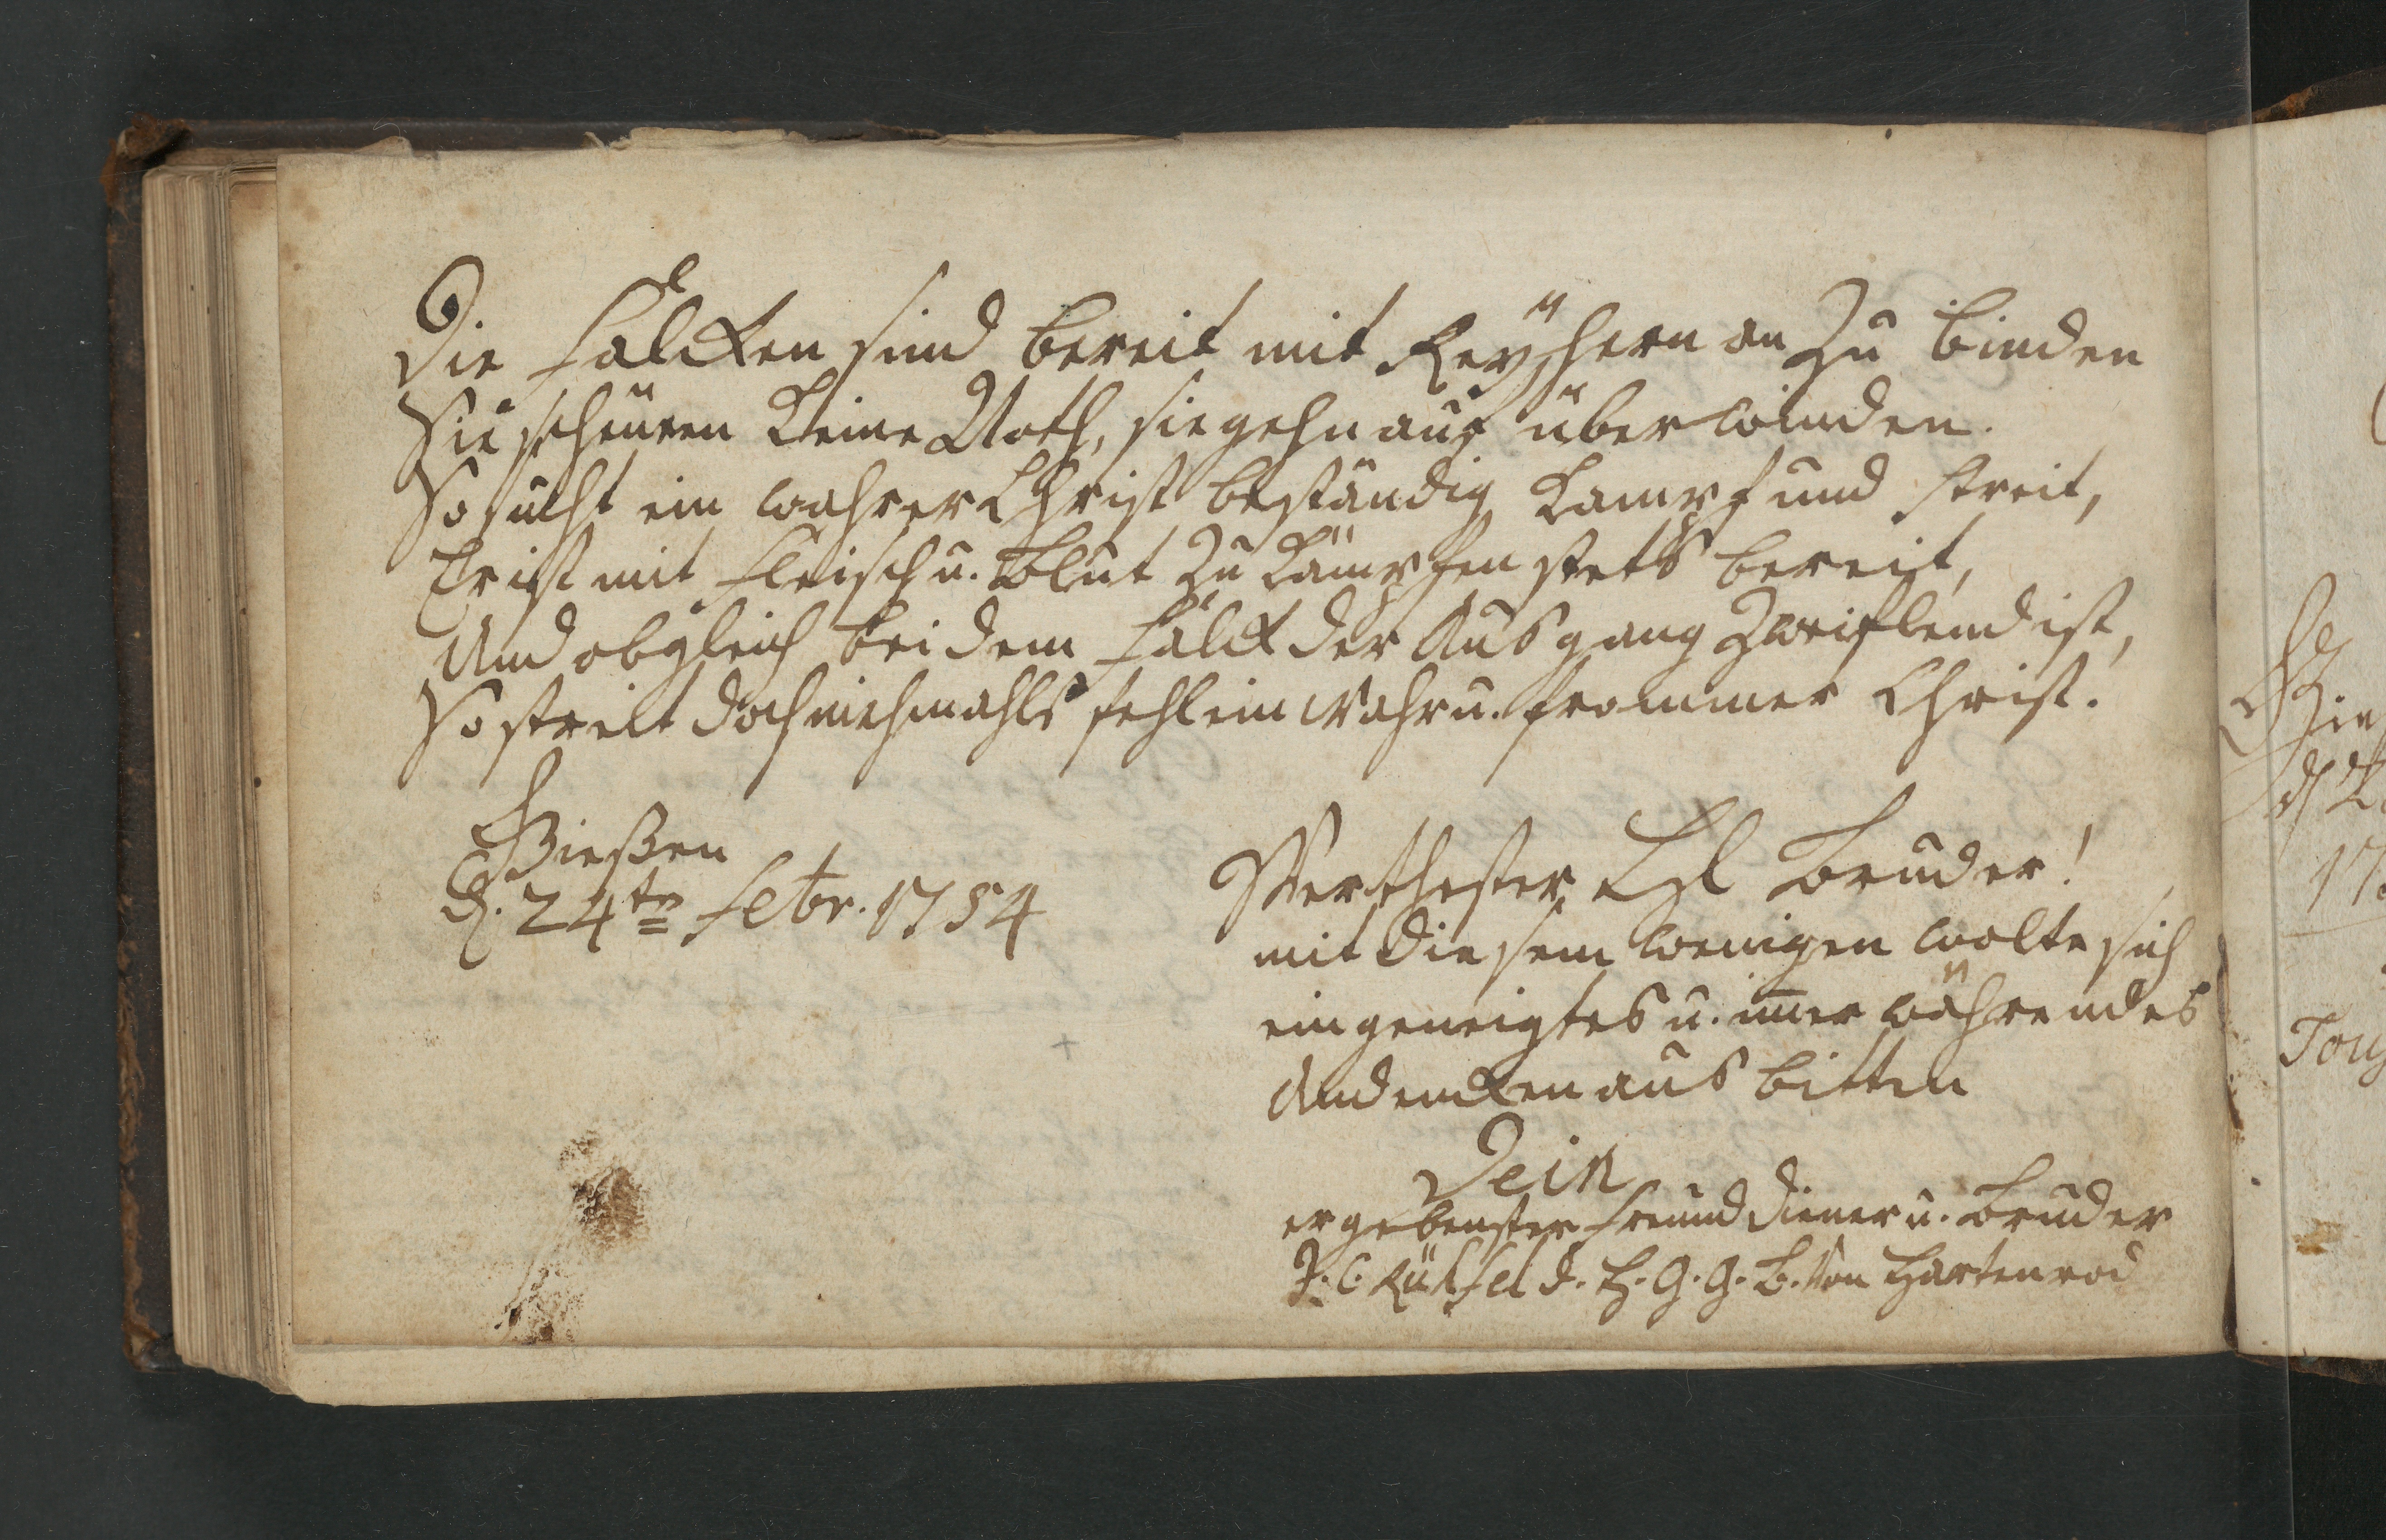 Die Falcken sind bereit mit Reÿhern an zu binden
Sie scheuen keine Noth, sie gehn auf überwinden.
So sucht ein wahrer Christ beständig Kampf und Streit,
Er ist mit Fleisch u. Blut zu kämpfen stets bereit,
Und obgleich bei dem Falck der Ausgang zweiflend ist,
So streit doch niehmahls fehl ein wahr u. frommer Christ.
Gießen
d. 24ten Febr. 1754
Werthester Bruder!
mit diesem wenigen wolte sich
ein geneigtes u. im̅er währendes
Andencken aus bitten
Dein
ergebenster Freund Diener u. Bruder
J. C. d. H. G. G. B. von Hartenrod